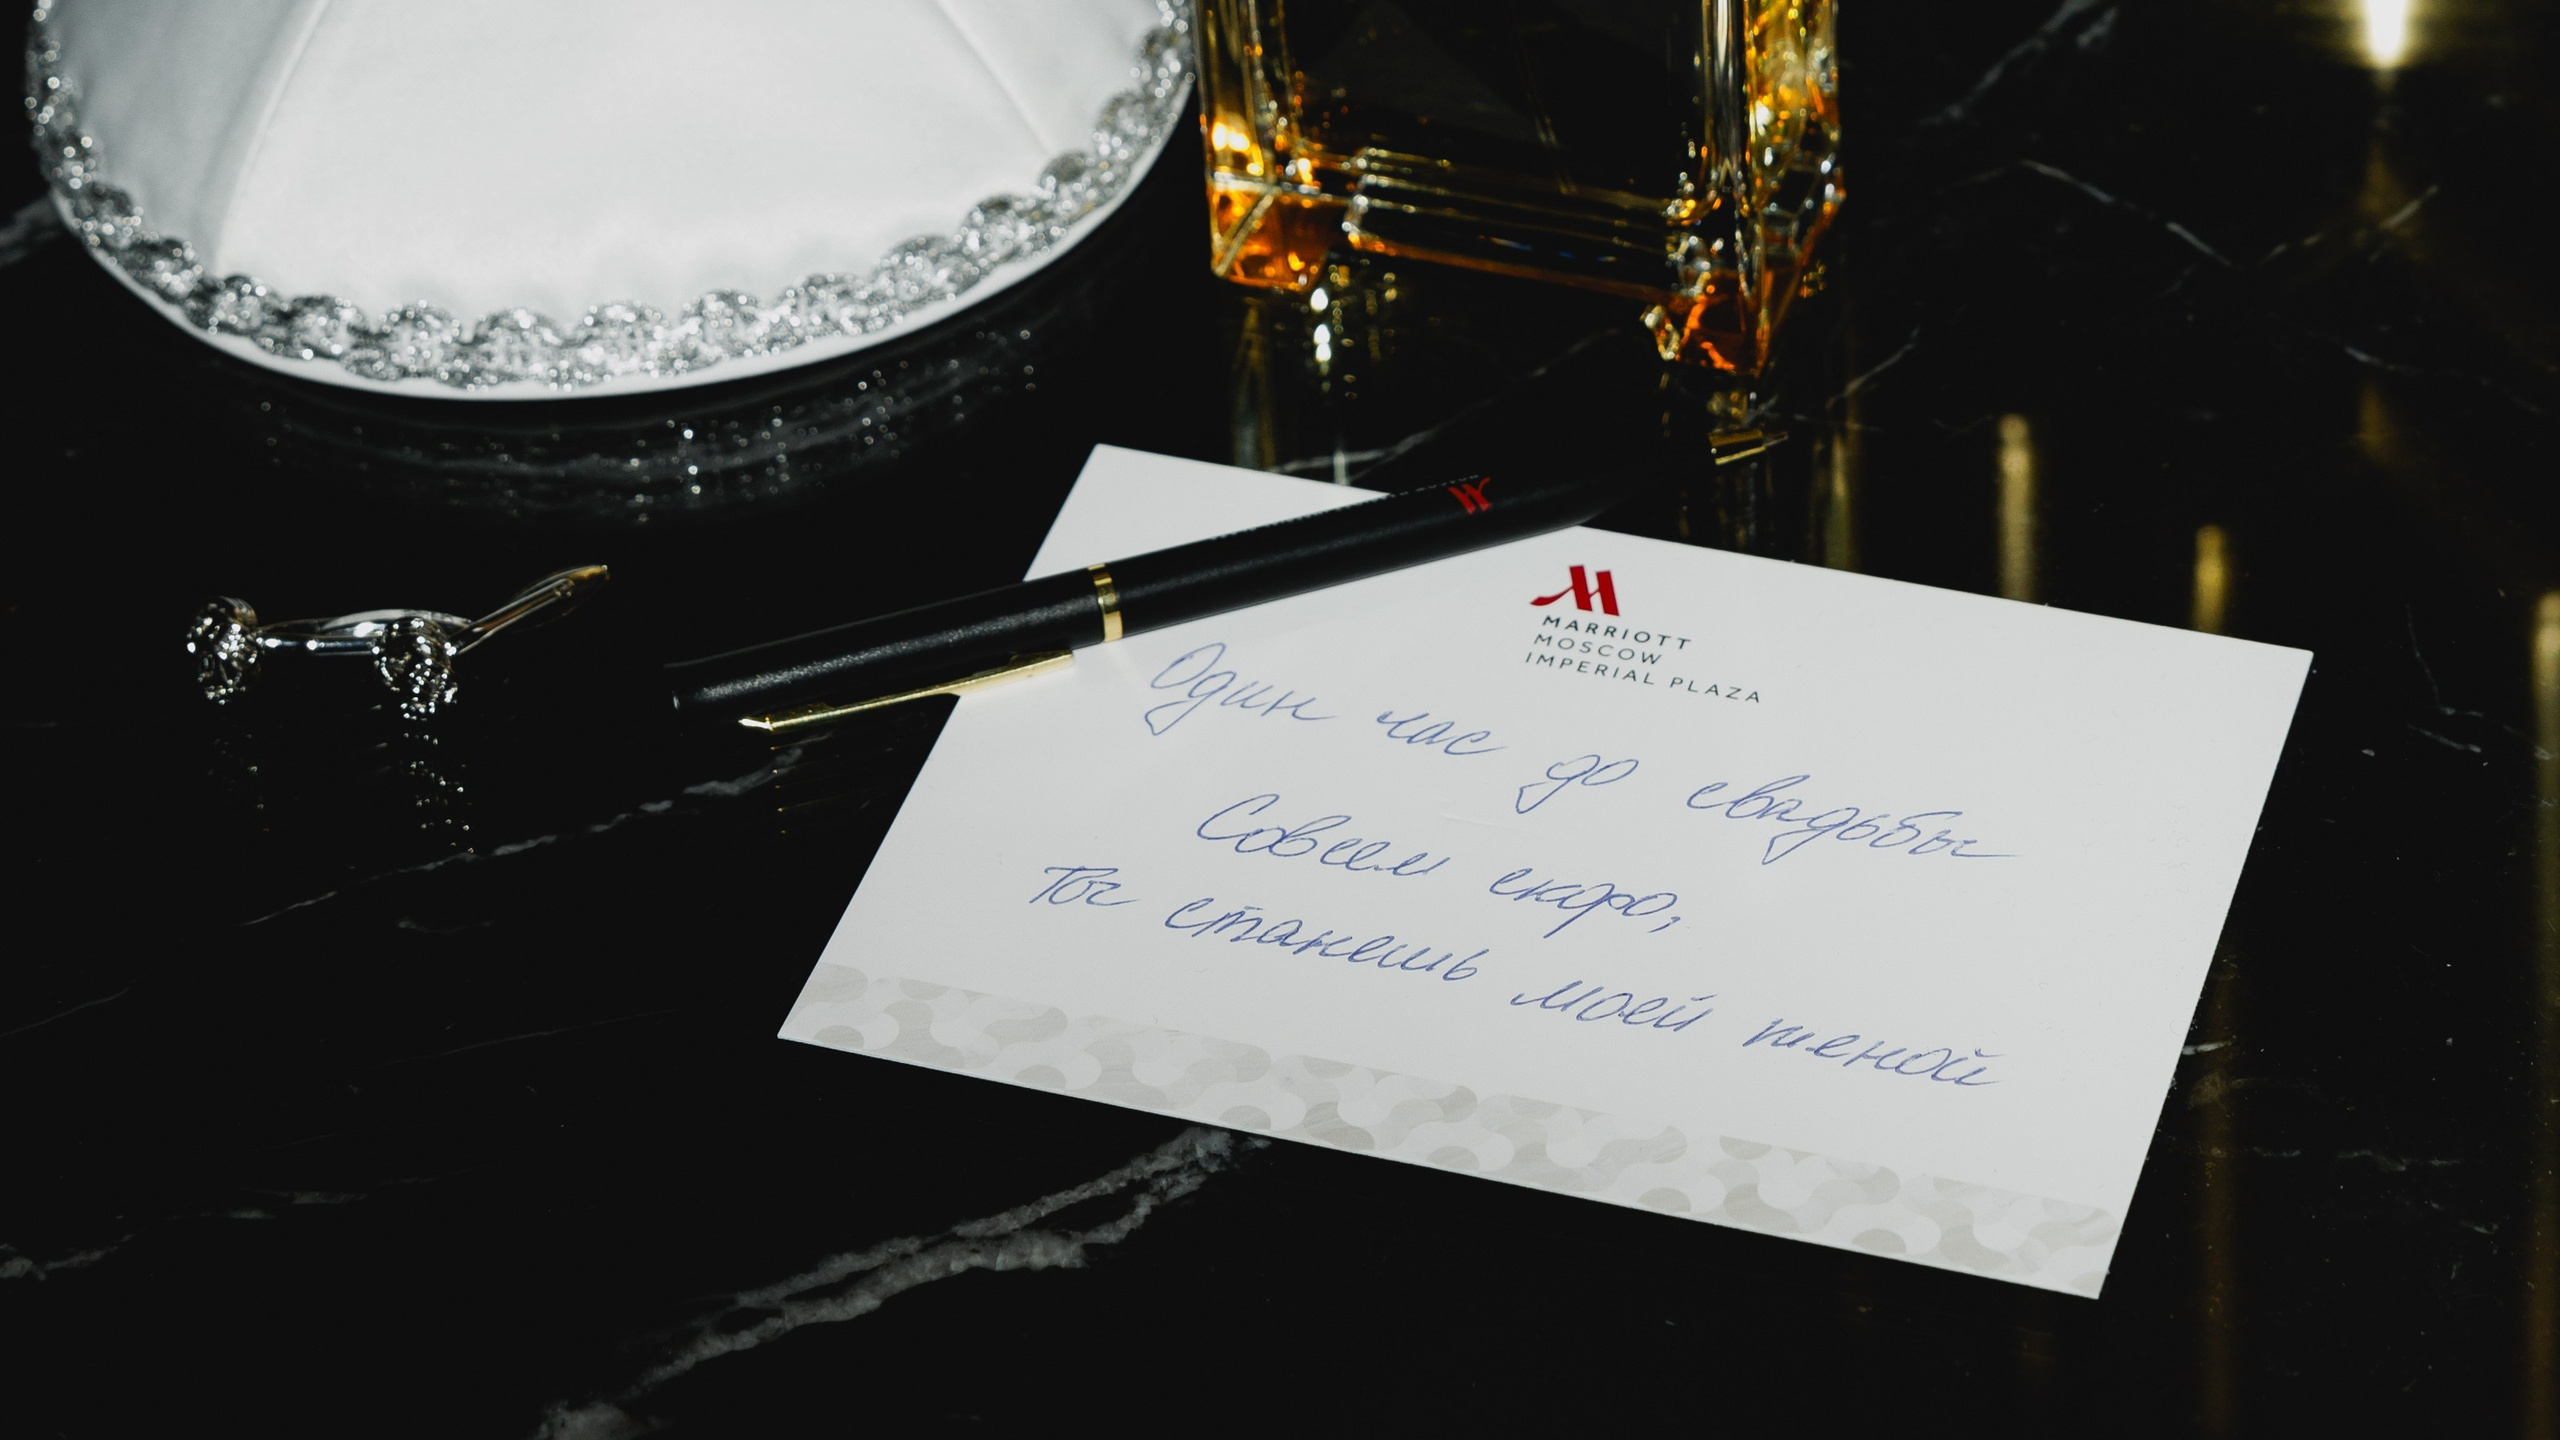 MARRIOTT
MOSCOW
IMPERIAL PLAZA
Один час до свадьбы
Совсем скоро,
Ты станешь моей женой